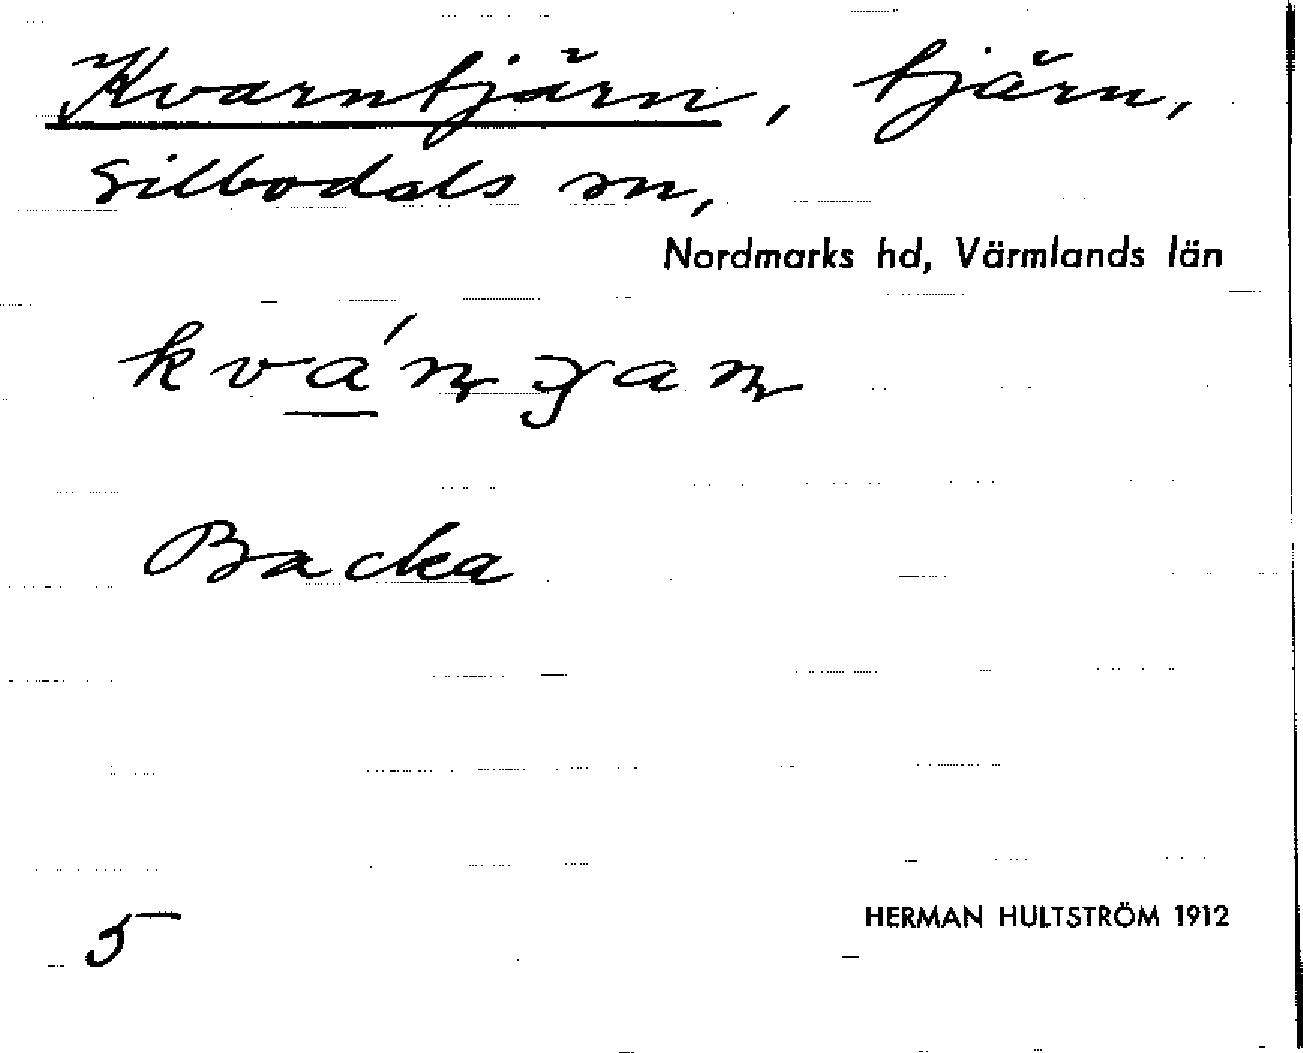 Kvarntjärn, tjärn,
Silbodals sn,
Nordmarks hd, Värmlands län
Backa
5
HERMAN HULTSTRÖM 1912